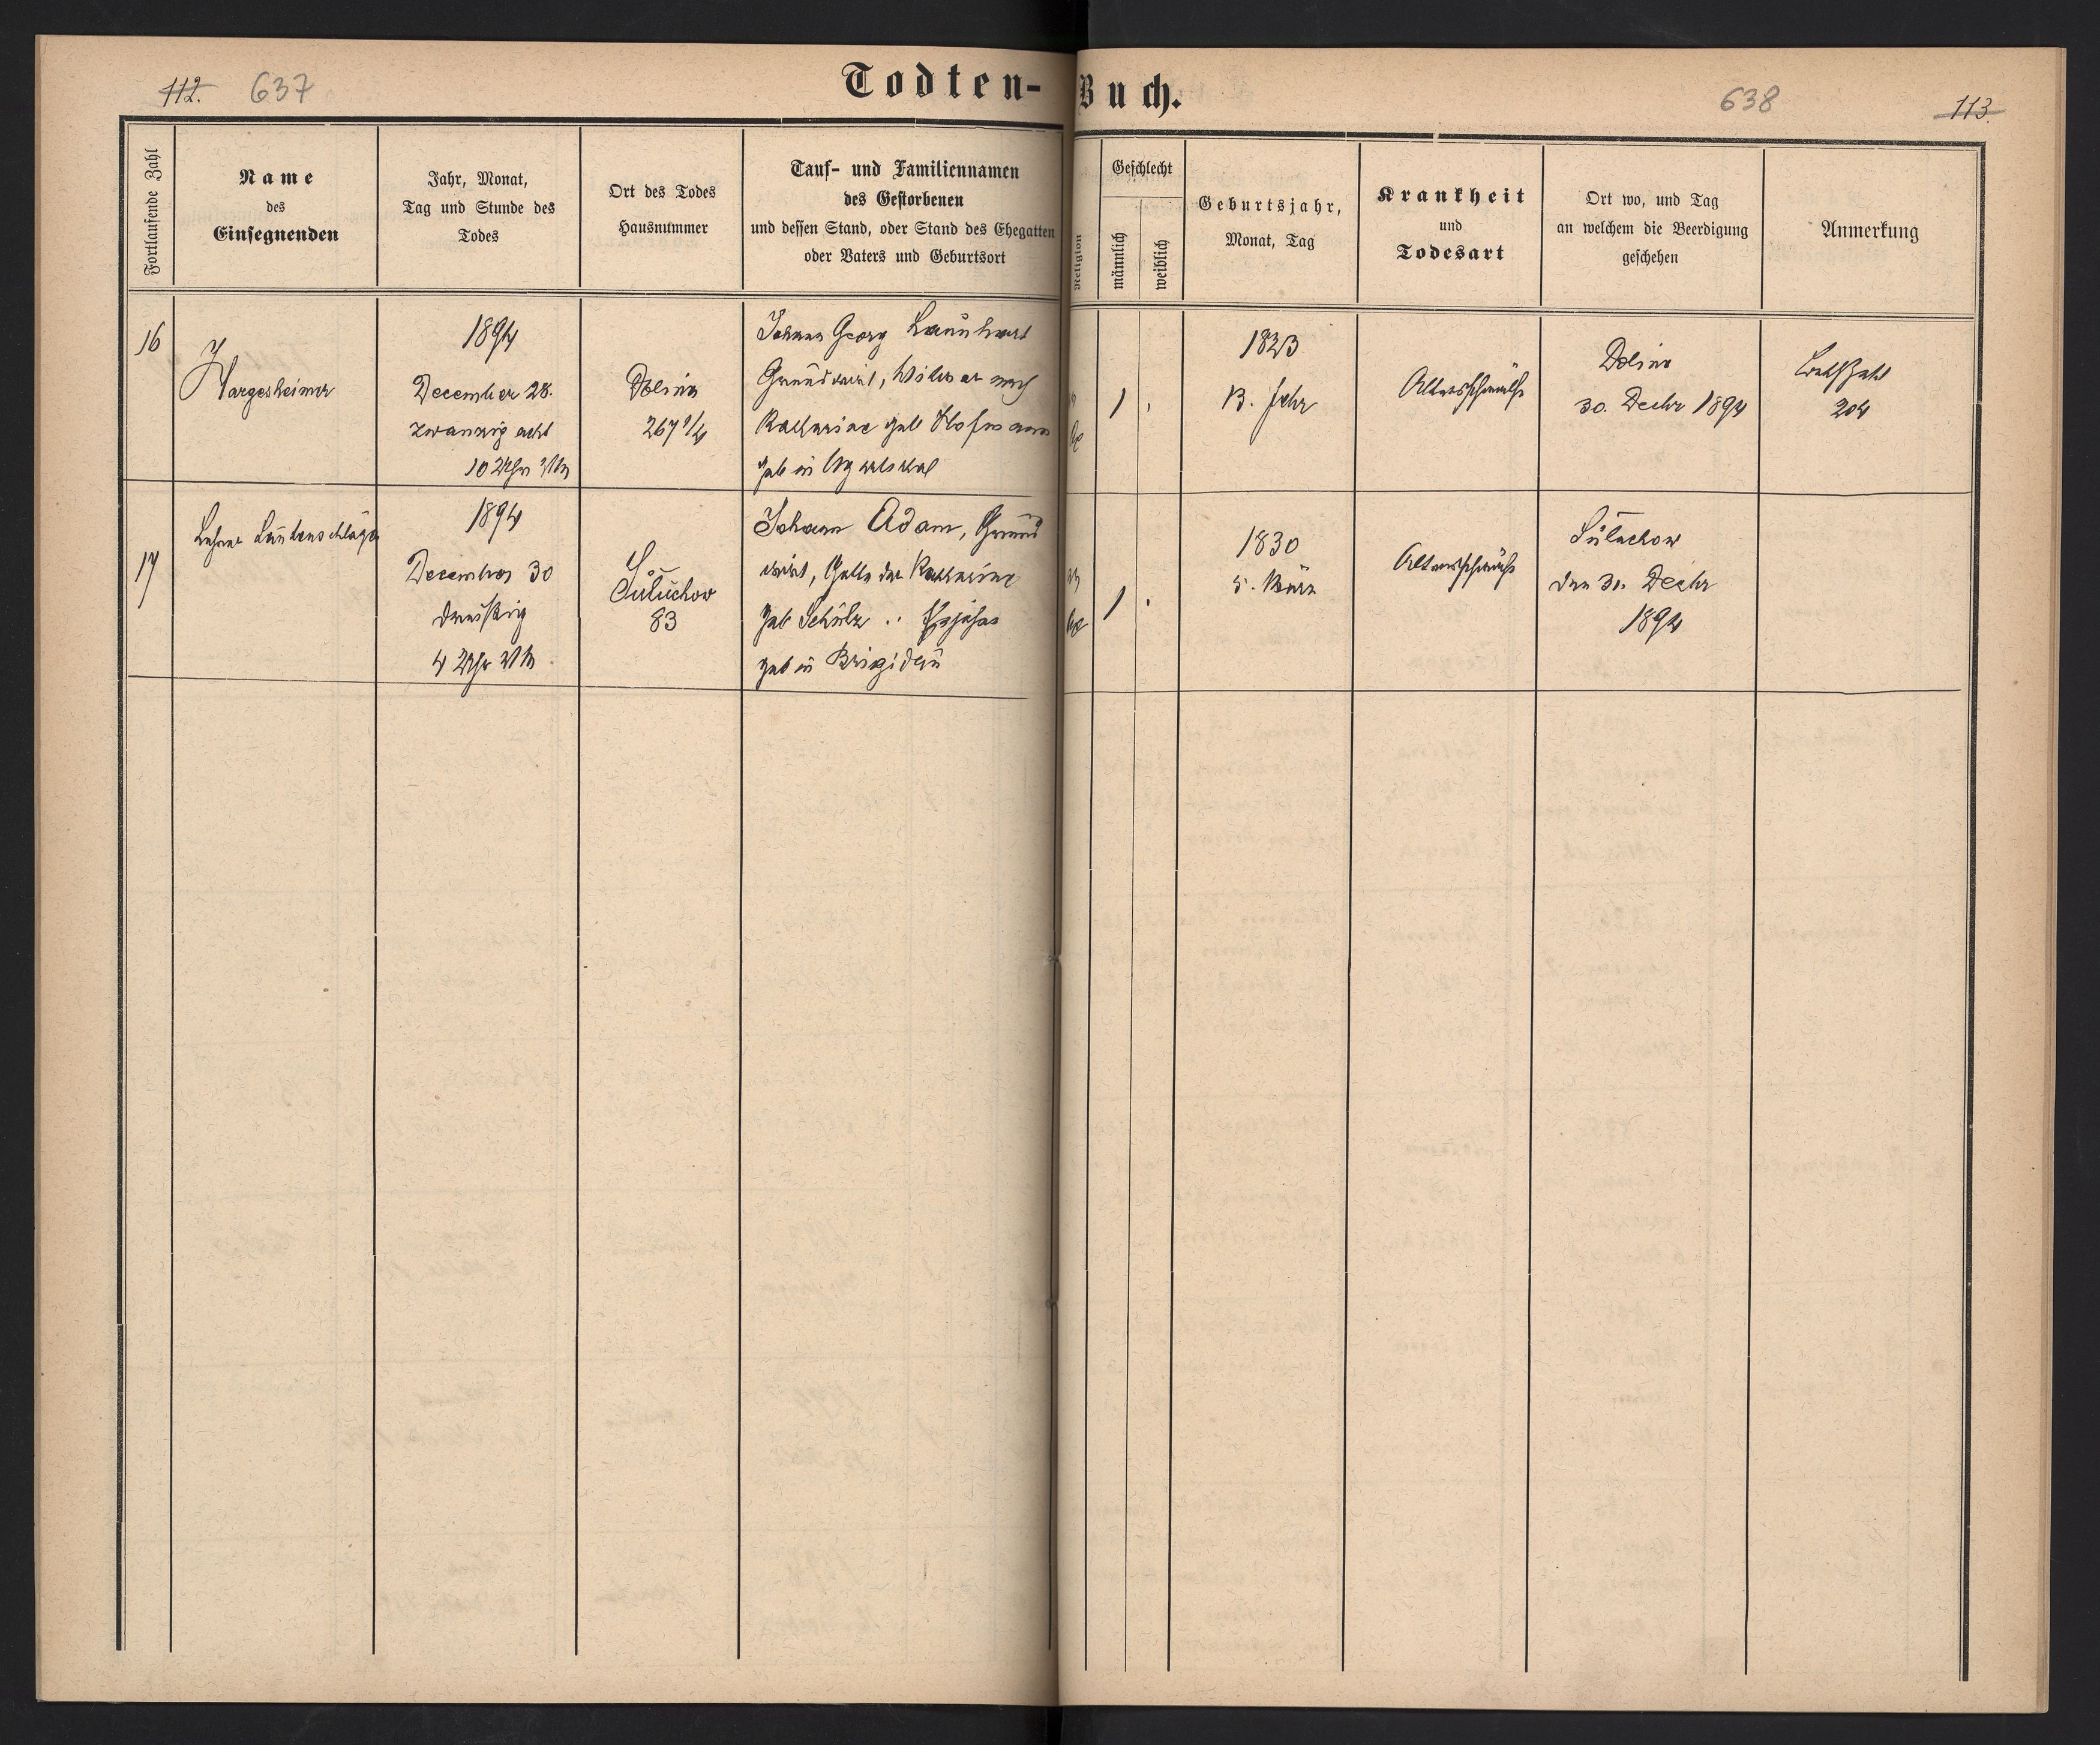 112. 637
Todten-Buch.
638 113.
Fortlaufende Zahl
Name
des
Einsegnenden
Jahr, Monat,
Tag und Stunde des
Todes
Ort des Todes
Hausnummer
Tauf- und Familiennamen
des Gestorbenen
und dessen Stand, oder Stand des Ehegatten
oder Vaters und Geburtsort
Religion
Geschlecht
männlich
weiblich
Geburtsjahr,
Monat, Tag
Krankheit
und
Todesart
Ort wo, und Tag
an welchem die Beerdigung
geschehen
Anmerkung
16
Hargesheimer
1894
December 28.
zwanzig acht
10 Uhr
Dolina
267 1/4
Johann Georg Launhart
Grundwirt, Witwer nach
Katharine geb Hofmann
geb in Ugartsthal
1
1823
13. Febr
Altersschwäche
Dolina
30. Decbr 1894
204
17
Lehrer Lautenschläger
1894
December 30
dreißig
4 Uhr
Suluchow
83
Johann Adam, Grund
wirt, Gatte der Katharine
geb Schulz
geb in Brigidau
1
1830
5. März
Altersschwäche
Suluchow
den 31. Decbr
1894